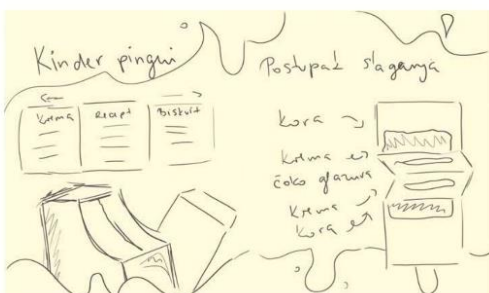 Kinder pingui
Krema
Recept
Biskvit
Postupak slaganja
Kora
Krema
čoko glazura
Krema
Kora